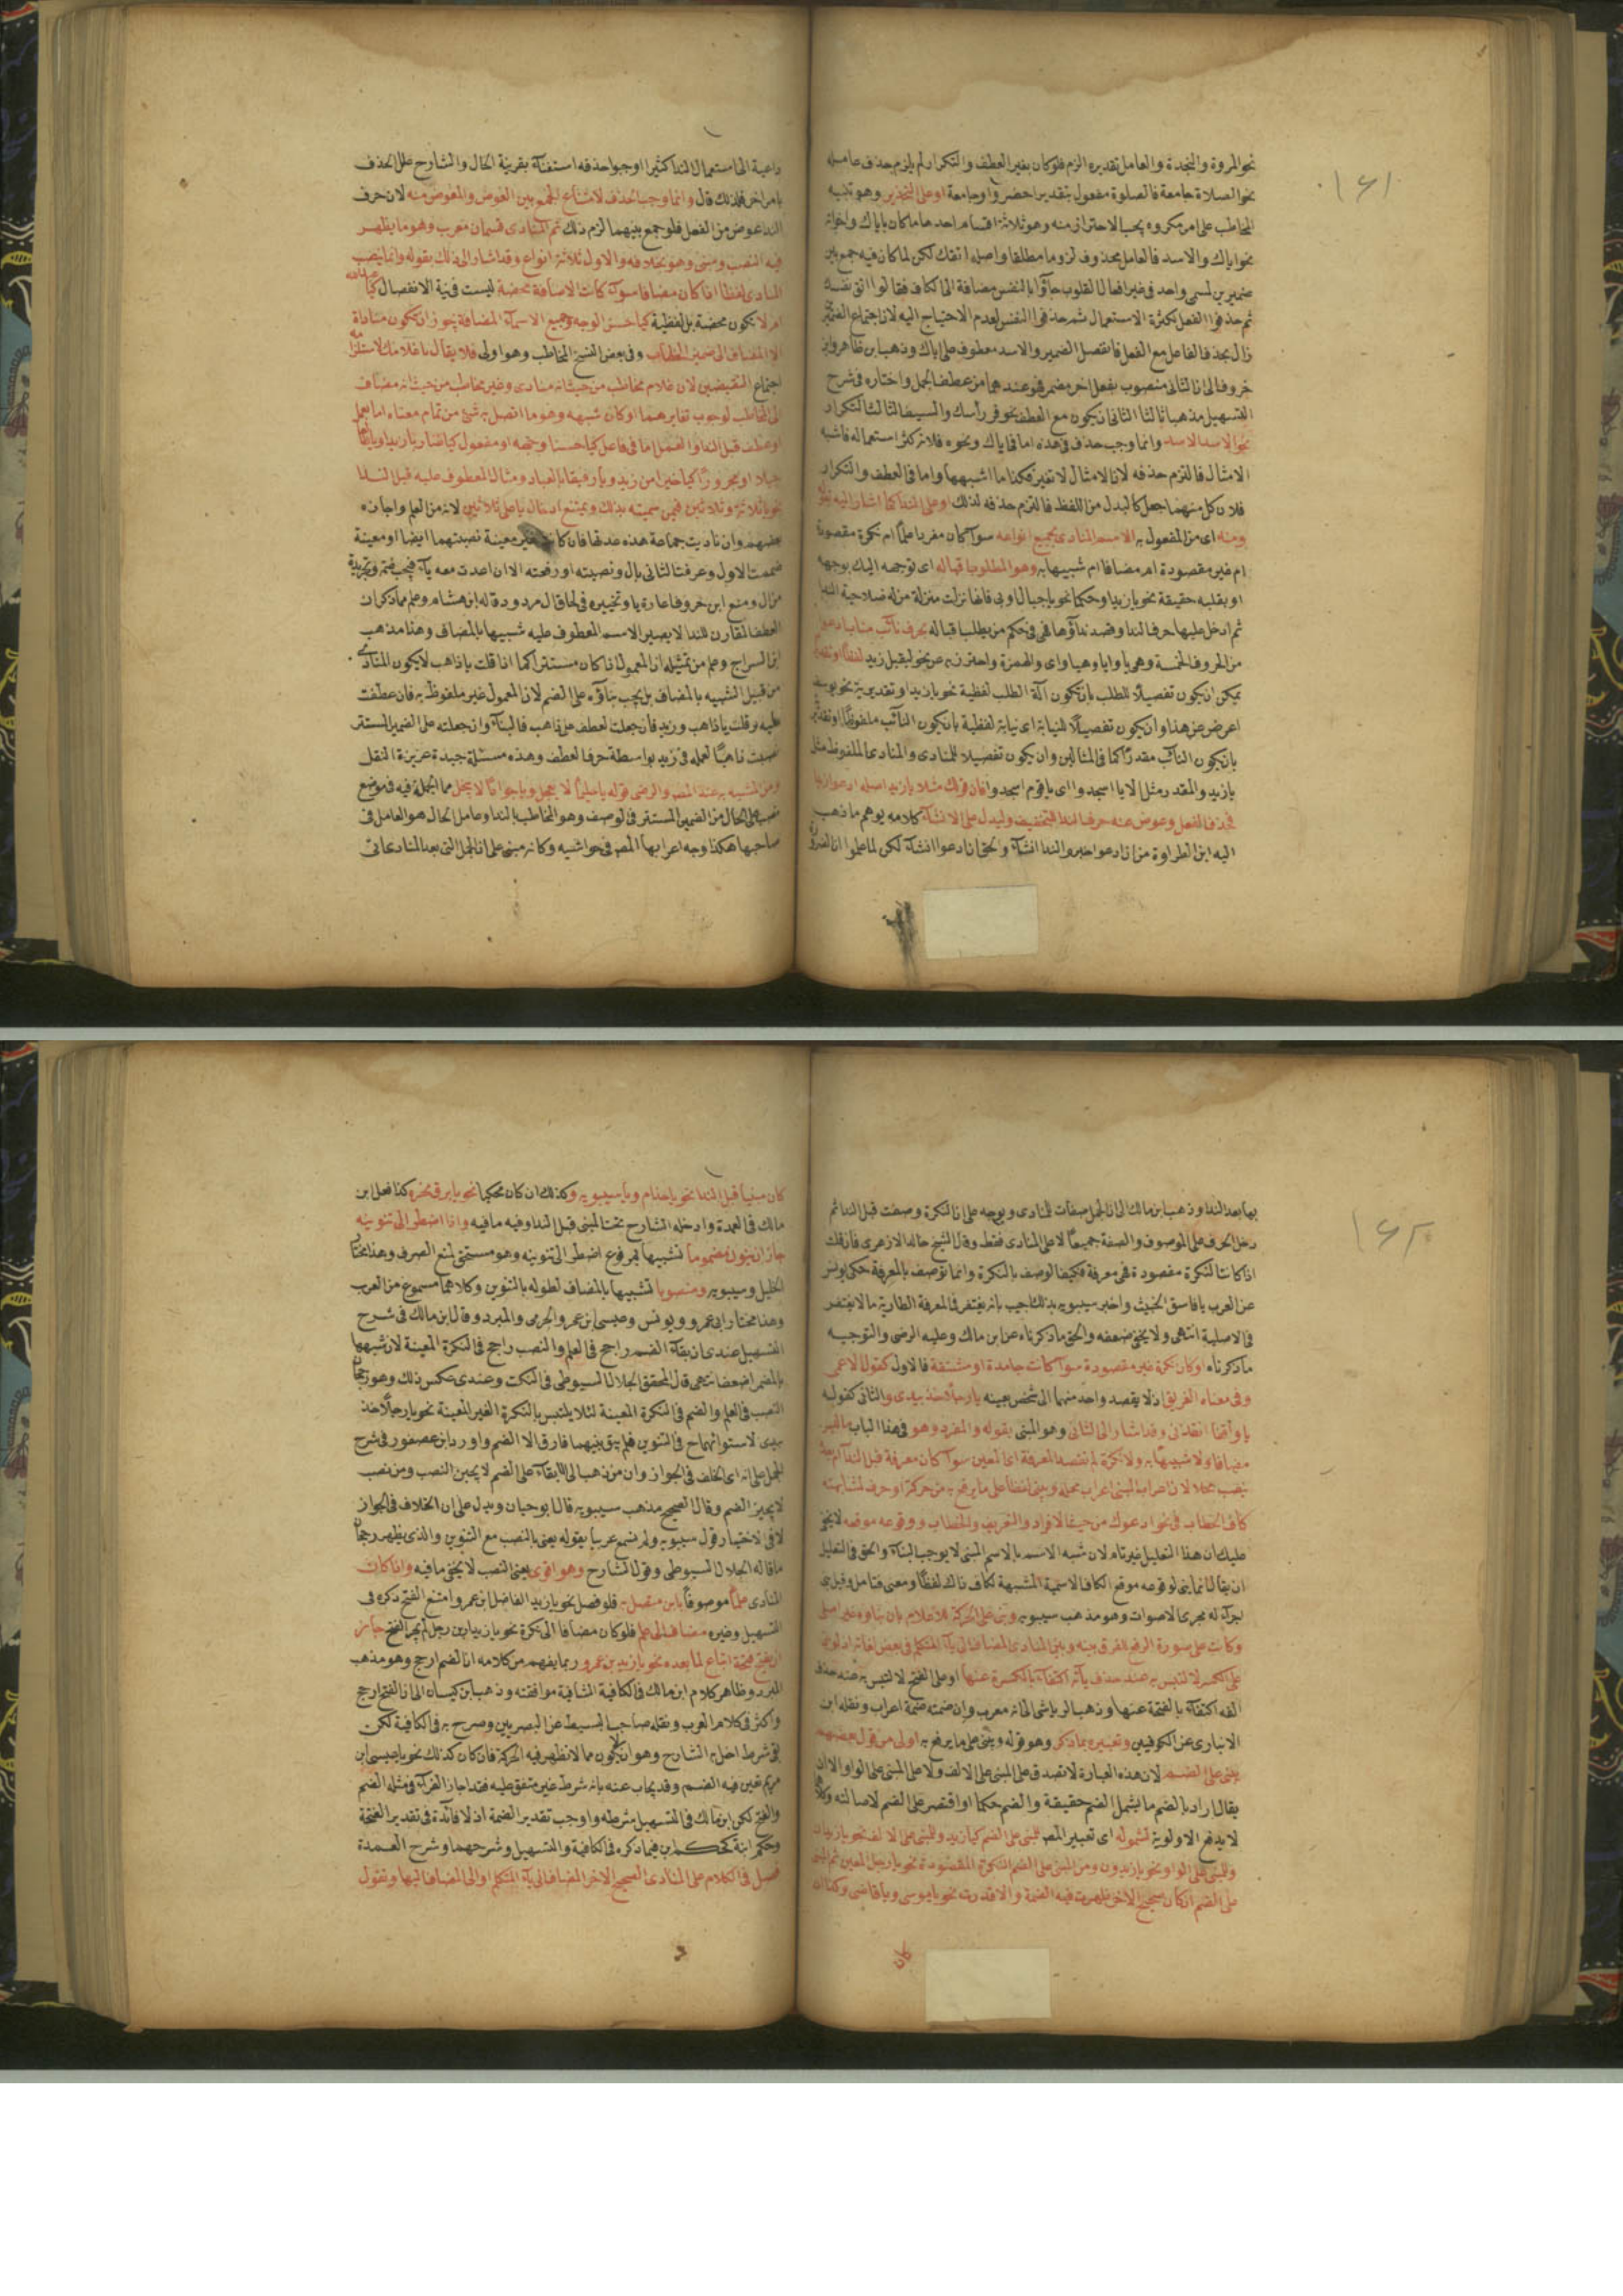 ١٤١
نحو المروة والنجدة والعامل تقديره الزم فلو كان بغير العطف والتكرار لم يلزم حذف عامله
نحو الصلاة جامعة فالصلوة مفعول بتقدير احضروا وجامعة او على التحذير وهو تنبيه
المخاطب على امر مكروه يجب الاحتراز منه وهو ثلاثة اقسام احدها ما كان باياك واخواته
نحو اياك والاسد فالعامل محذوف لزوما مطلقا واصله اتقك لكن لما كان فيه جمع بين
ضميرين لمسمى واحد فى غير افعال القلوب جاؤا بالنفس مضافة الى الكاف فقالوا اتق نفسك
ثم حذفوا الفعل لكثرة الاستعمال ثم حذفوا النفس لعدم الاحتياج اليه لان اجتماع الضميرين
زال بحذف الفاعل مع الفعل فانفصل الضمير والاسد معطوف على اياك وذهب ابن طاهر وابن
خروف الى ان الثانى منصوب بفعل اخر مضمر فهو عندهما من عطف الجمل واختاره فى شرح
التسهيل مذهبا ثالثا الثانى ان يكون مع العطف نحو قر رأسك والسيف الثالث التكرار
نحو الاسد الاسد وانما وجب حذف فى هذه اما فى اياك ونحوه فلانه كثر استعماله فاشبه
الامثال فالتزم حذفه لان الامثال لا تغير فكذا ما اشبهها واما فى العطف والتكرار
فلان كل منهما جعل كالبدل من اللفظ فالتزم حذفه لذلك او على الندا كما اشار اليه بقوله
ومنه اى من المفعول به الاسم المنادى بجميع انواعه سوآ كان مفردا علما ام نكرة مقصودة
ام غير مقصودة ام مضافا ام شبيها به وهو المطلوب اقباله اى توجهه اليك بوجهه
او بقلبه حقيقة نحو يا زيد او حكما نحو يا جبال اوبى فانها نزلت منزلة من له صلاحية الندا
ثم ادخل عليها حرف الندا وقصد نداؤها فهى فى حكم من يطلب اقباله بحرف نائب مناب ادعو
من الحروف الخمسة وهى يا وايا وهيا واى والهمزة واحترز به عن نحو ليقبل زيد لفظا او تقديرا
يمكن ان يكون تفصيلا للطلب بان يكون آلة الطلب لفظية نحو يا زيد او تقديرية نحو يوسف
اعرض عن هذا وان يكون تفصيلا للنيابة اى نيابة لفظية بان يكون النائب ملفوظا او تقديرية
بان يكون النائب مقدرا كما فى المثالين وان يكون تفصيلا للمنادى والمنادى الملفوظ مثل
يا زيد والمقدر مثل الا يا اسجدوا اى يا قوم اسجدوا فان قولك مثلا يا زيد اصله ادعوا زيدا
فحذف الفعل وعوض عنه حرف الندا للتخفيف وليدل على الانشآ كلامه يوهم ما ذهب
اليه ابن الطراوة من ان ادعو اخبر والندا انشآ والحق ان ادعوا انشآ لكن لما علموا ان الضرورة
داعية الى استعمال الندا كثيرا اوجبوا حذفه استغنآء بقرينة الحال والشارح علل الحذف
بامر اخر فلذلك قال وانما وجب الحذف لامتناع الجمع بين العوض والمعوض منه لان حرف
الندا عوض من الفعل فلو جمع بينهما لزم ذلك ثم المنادى قسمان معرب وهو ما يظهر
فيه النصب ومبنى وهو بخلافه والاول ثلاثة انواع وقد اشار الى ذلك بقوله وانما ينصب
المنادى لفظا اذا كان مضافا سوآ كانت الاضافة محضة ليست فى نية الانفصال كيا عبد الله
ام لا يكون محضة بل لفظية كيا حسن الوجه وجميع الاسمآء المضافة يجوز ان تكون مناداة
الا المضاف الى ضمير الخطاب وفى بعض النسخ المخاطب وهو اولى فلا يقال يا غلامك لاستلزامه
اجتماع النقيضين لان غلام مخاطب من حيث انه منادى وغير مخاطب من حيث انه مضاف
الى المخاطب لوجوب تغايرهما او كان شبهه وهو ما اتصل به شئ من تمام معناه اما بعمل
او عطف قبل الندا والعمل اما فى فاعل كيا حسنا وجهه او مفعول كيا ضاربا زيدا ويا طالعا
جبلا او مجرورا كيا خيرا من زيد ويا رفيقا بالعباد ومثال المعطوف عليه قبل الندا
نحو يا ثلاثة وثلاثين فيمن سميته بذلك ويمتنع ادخال يا على ثلاثين لانه من العلم واجازه
بعضهم وان ناديت جماعة هذه عدتها فان كانت غير معينة نصبتهما ايضا او معينة
ضممت الاول وعرفت الثانى بال ونصبته او رفعته الا ان اعدت معه يآء فيجب ضمه وتجريده
من ال ومنع ابن خروف اعادة يا وتخييره فى الحاق ال مردود قاله ابن هشام وعلم مما ذكر ان
العطف المقارن للندا لا يصير الاسم المعطوف عليه شبيها بالمضاف وهذا مذهب
ابن السراج وعلم من تمثيله ان المعمول اذا كان مستترا كما اذا قلت يا ذاهب لا يكون المنادى
من قبيل الشبيه بالمضاف بل يجب بناؤه على الضم لان المعمول غير ملفوظ به فان عطفت
عليه وقلت يا ذاهب وزيد فان جعلت العطف على ذاهب فالبنآء وان جعلته على الضمير المستتر
نصبت ذاهبا لعمله فى زيد بواسطة حرف العطف وهذه مسئلة جيدة عزيزة النقل
ومن المشبه به عند المص والرضى قوله يا حليما لا يعجل ويا جوادا لا يبخل مما الجملة فيه فى موضع
نصب على الحال من الضمير المستتر فى الوصف وهو المخاطب بالندا وعامل الحال هو العامل فى
صاحبها هكذا وجه اعرابها المص فى حواشيه وكانه مبنى على ان الجمل التى بعد المنادى اتى
١٤٢
بها بعد الندا وذهب ابن مالك الى ان الجمل صفات للمنادى ويوجه على ان النكرة وصفت قبل الندا ثم
دخل الحرف على الموصوف والصفة جميعا لا على المنادى فقط وقال الشيخ خالد الازهرى فان قلت
اذا كانت النكرة مقصودة فهى معرفة فكيف الوصف بالنكرة وانما توصف بالمعرفة حكى يونس
عن العرب يا فاسق الخبيث واخبر سيبويه بذلك اجيب بانه يغتفر فى المعرفة الطارية ما لا يغتفر
فى الاصلية انتهى ولا يخفى ضعفه والحق ما ذكرناه عن ابن مالك وعليه الرضى والتوجيه
ما ذكرناه او كان نكرة غير مقصودة سوآ كانت جامدة او مشتقة فالاول كقول الاعمى
وفى معناه الغريق اذ لا يقصد واحد منهما الى شخص بعينه يا رجلا خذ بيدى والثانى كقوله
يا واقفا انقذنى وقد اشار الى الثانى وهو المبنى بقوله والمفرد وهو فى هذا الباب ما ليس
مضافا ولا شبيها به ولا نكرة لم تقصد المعرفة اى المعين سوآ كان معرفة قبل الندآ ام بعده
نصب محلا لان اعراب المبنى اعراب محله ويبنى لفظا على ما يرفع به من حركة او حرف لمشابهته
كاف الخطاب فى نحو ادعوك من حيث الافراد والتعريف والخطاب ووقوعه موقعه لا يخفى
عليك ان هذا التعليل غير تام لان شبه الاسم بالاسم المبنى لا يوجب البنآء والحق فى التعليل
ان يقال انما بنى لوقوعه موقع الكاف الاسمية المشبهة لكاف ذاك لفظا ومعنى فتامل وقيل بنى
اجرآء له مجرى الاصوات وهو مذهب سيبويه وبنى على الحركة للاعلام بان بناوه غير اصلى
وكانت على صورة الرفع للفرق بينه وبين المنادى المضاف الى يآء المتكلم فى بعض لغاته اذ لو بنى
على الكسر لالتبس به عند حذف يآئه اكتفآء بالكسرة عنها او على الفتح لالتبس به عند حذف
الفه اكتفآء بالفتحة عنها وذهب الرياشى الى انه معرب وان ضمته ضمة اعراب ونقله ابن
الانبارى عن الكوفيين وتعبيره بما ذكر وهو قوله ويبنى على ما يرفع به اولى من قول بعضهم
يبنى على الضم لان هذه العبارة لا تصدق على المبنى على الالف ولا على المبنى على الواو الا ان
يقال اراد بالضم ما يشمل الضم حقيقة والضم حكما او اقتصر على الضم لاصالته وكلاهما
لا يدفع الاولوية لشموله اى تعبير المص للمبنى على الضم كيا زيد وللمبنى على الالف نحو يا زيدان
وللمبنى على الواو نحو يا زيدون ومن المبنى على الضم النكرة المقصودة نحو يا رجل لمعين ثم المبنى
على الضم ان كان صحيح الاخر ظهرت فيه الضمة والا قدرت نحو يا موسى ويا قاضى وكذا ان
كان
كان مبنيا قبل الندا نحو يا حذام ويا سيبويه وكذلك ان كان محكيا نحو يا برق نحره كذا فعل ابن
مالك فى العمدة وادخله الشارح تحت المبنى قبل الندا وفيه ما فيه واذا اضطر الى تنوينه
جاز ان ينون مضموما تشبيها بمرفوع اضطر الى تنوينه وهو مستحق لمنع الصرف وهذا مختار
الخليل وسيبويه ومنصوبا تشبيها بالمضاف لطوله بالتنوين وكلاهما مسموع من العرب
وهذا مختار ابى عمرو ويونس وعيسى ابن عمر والجرمى والمبرد وقال ابن مالك فى شرح
التسهيل عندى ان بقآء الضم راجح فى العلم والنصب راجح فى النكرة المعينة لان شبهها
بالمضمر اضعف انتهى قال المحقق الجلال السيوطى فى النكت وعندى عكس ذلك وهو ترجيح
النصب فى العلم والضم فى النكرة المعينة لئلا يلتبس بالنكرة الغير المعينة نحو يا رجلا خذ
بيدى لاستوائهما ح فى التنوين فلم يبق بينهما فارق الا الضم واورد ابن عصفور فى شرح
الجمل على انه اى الخلف فى الجواز وان من ذهب الى الابقآء على الضم لا يجيز النصب ومن نصب
لا يجيز الضم وقال الصحيح مذهب سيبويه قال ابو حيان ويدل على ان الخلاف فى الجواز
لا فى الاختيار قول سيبويه ولم نسمع عربيا يقوله يعنى بالنصب مع التنوين والذى يظهر رجحان
ما قاله الجلال السيوطى وقول الشارح وهو اقوى يعنى النصب لا يخفى ما فيه واذا كان
المنادى علما موصوفا بابن متصل به فلو فصل نحو يا زيد الفاضل ابن عمرو امتنع الفتح ذكره فى
التسهيل وغيره مضاف الى علم فلو كان مضافا الى نكرة نحو يا زيد ابن رجل لم يجز الفتح جاز
ان يفتح فتحة اتباع لما بعده نحو يا زيد بن عمرو وربما يفهم من كلامه ان الضم ارجح وهو مذهب
المبرد وظاهر كلام ابن مالك فى الكافية الشافية موافقته وذهب ابن كيسان الى ان الفتح ارجح
واكثر فى كلام العرب ونقله صاحب البسيط عن البصريين وصرح به فى الكافية لكن
بقى شرط اخل به الشارح وهو ان يكون مما لا تظهر فيه الحركة فان كان كذلك نحو يا عيسى ابن
مريم تعين فيه الضم وقد يجاب عنه بانه شرط غير متفق عليه فقد اجاز الفرآء فى مثله الضم
والفتح لكن ابن مالك فى التسهيل شرطه واوجب تقدير الضمة اذ لا فائدة فى تقدير الفتحة
وحكم ابنة كحكم ابن فيما ذكره فى الكافية والتسهيل وشرحهما وشرح العمدة
فصل فى الكلام على المنادى الصحيح الاخر المضاف الى يآء المتكلم او الى المضاف اليها وتقول